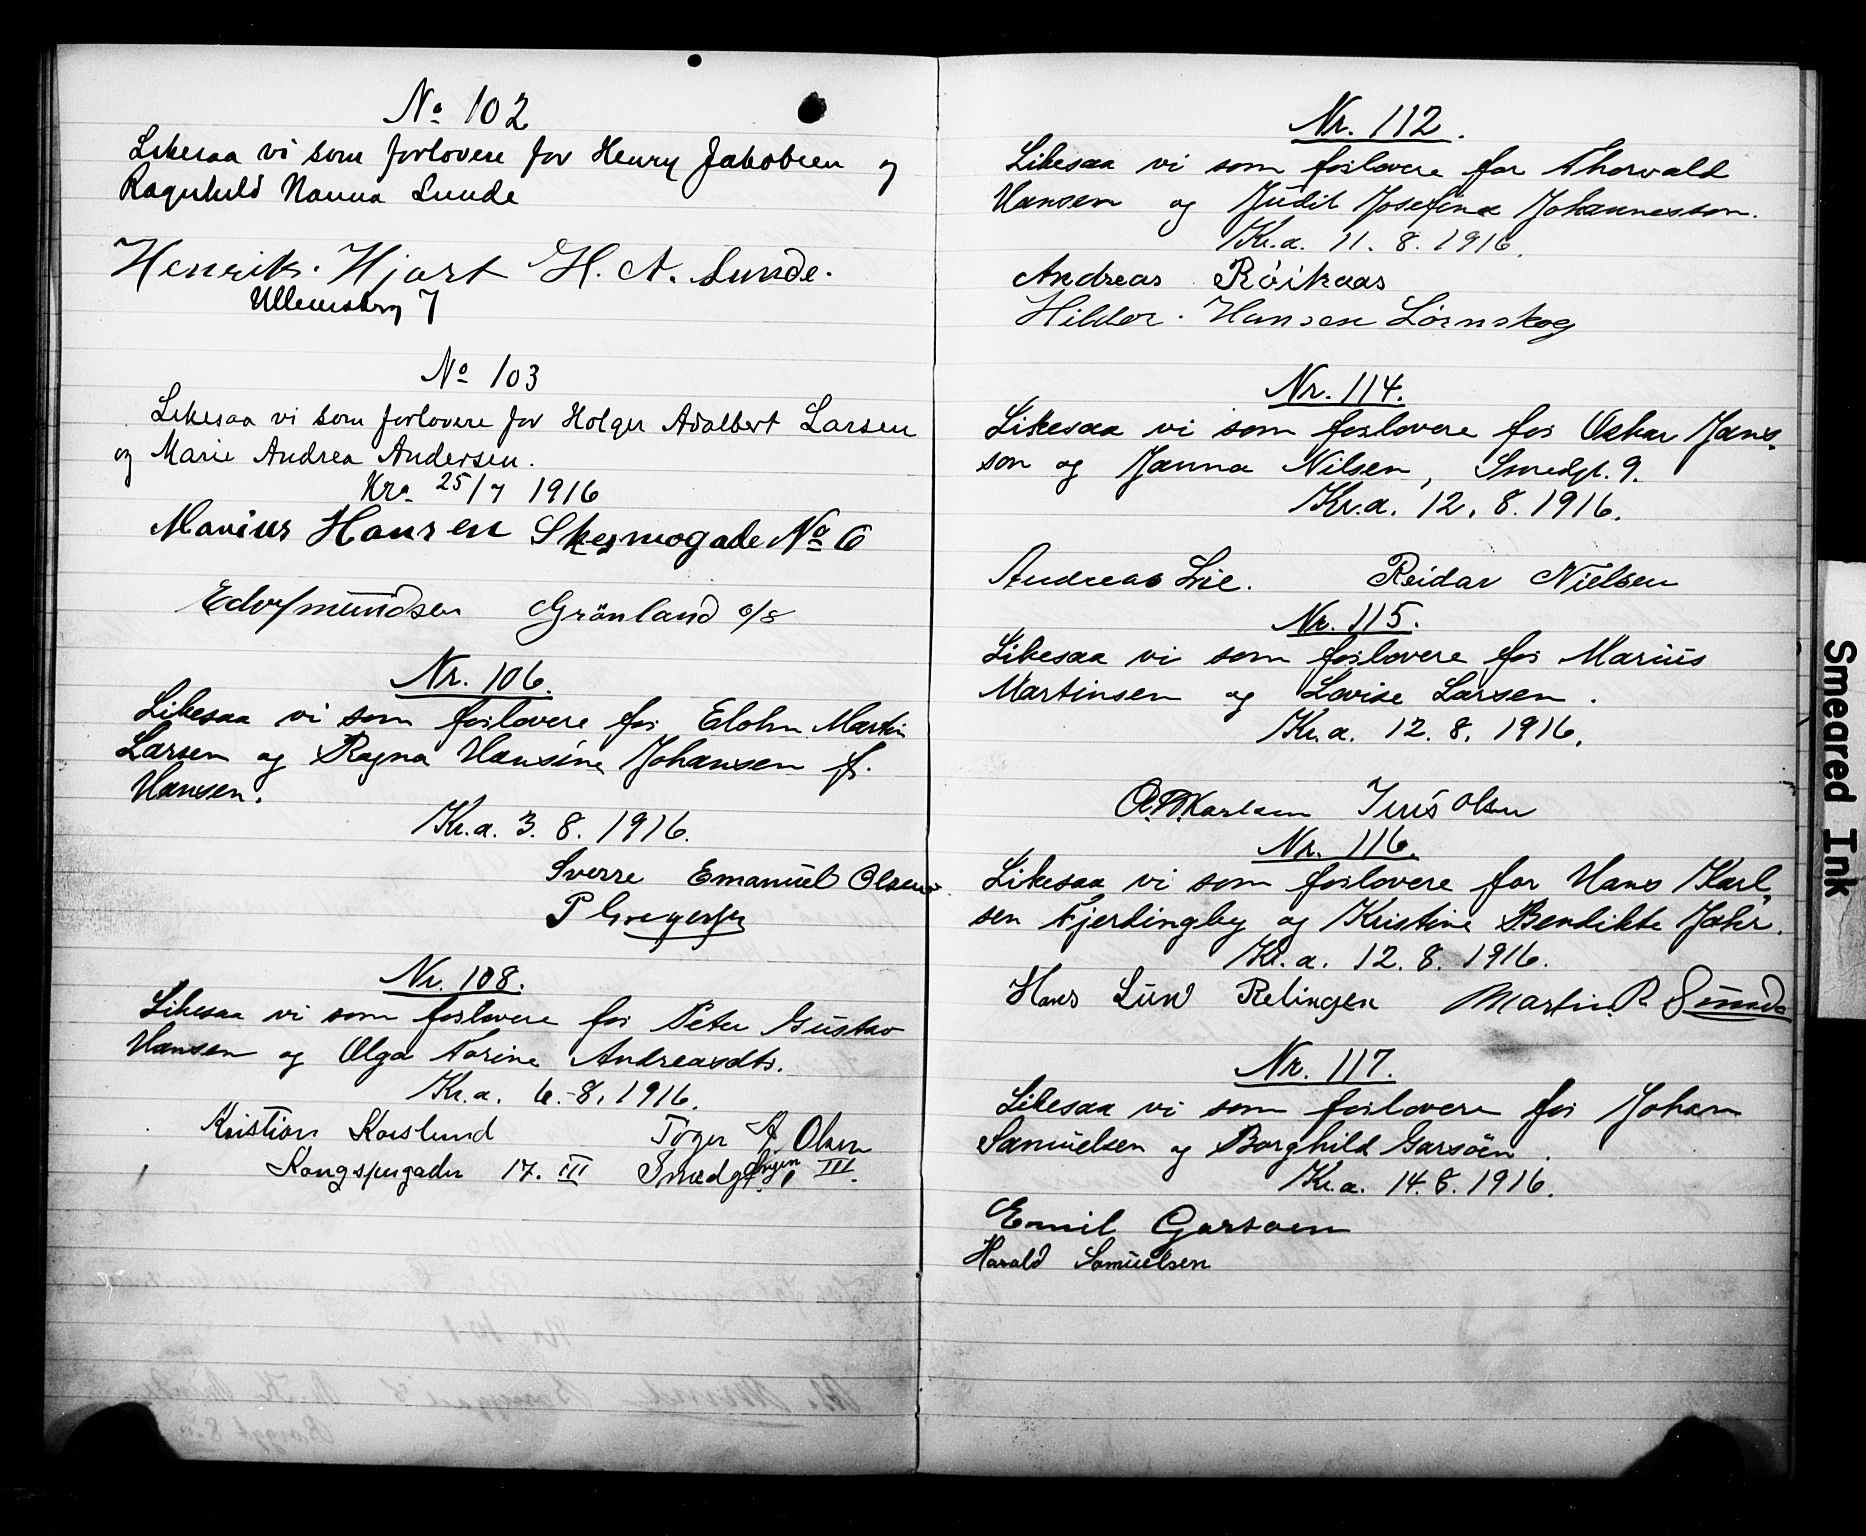 No 102
Likesaa vi som forlovere for Henry Jakobsen og
Ragnhild Nanna Lunde
Henrik Hjort H. A. Lunde.
Ullensberg 7
No 103
Likesaa vi som forlovere for Holger Adalbert Larsen
og Marie Andrea Andersen.
Kra 25/7 1916
Marius Hansen No 6
Grönland
Nr. 106.
Likesaa vi som forlovere for Martin
Larsen og Ragna Hansine Johansen f.
Hansen.
Kr.a. 3. 8. 1916.
Sverre Emanuel Olsen
P Gregersen
Nr. 108.
Likesaa vi som forlovere for Peter Gustav
Hansen og Olga Karine Andreasdtr.
Kr.a. 6.-8. 1916.
Kristian Olsen
17. III Smedg. III.
Nr. 112.
Likesaa vi som forlovere for Thorvald
Hansen og Judit Josefina Johannesson.
Kr.a. 11. 8. 1916.
Andreas Röikaas
Hildor. Hansen Lörnskog
Nr. 114.
Likesaa vi som forlovere for Oskar Jans-
son og Janna Nilsen, Smedgt. 9.
Kr.a. 12. 8. 1916.
Andreas Lie. Reidar Nielsen
Nr. 115.
Likesaa vi som forlovere for Marius
Martinsen og Lovise Larsen.
Kr.a. 12. 8. 1916.
Karlsen Olsen
Nr. 116.
Likesaa vi som forlovere for Hans Karl
sen Fjerdingby og Kristine Bendikte Jahr.
Kr.a. 12. 8. 1916.
Hans Lund Relingen Martin R Sunde
Nr. 117.
Likesaa vi som forlovere for Johan
Samuelsen og Borghild Garsöen.
Kr.a. 14. 8. 1916.
Emil Garsoen
Harald Samuelsen
Smeared Ink